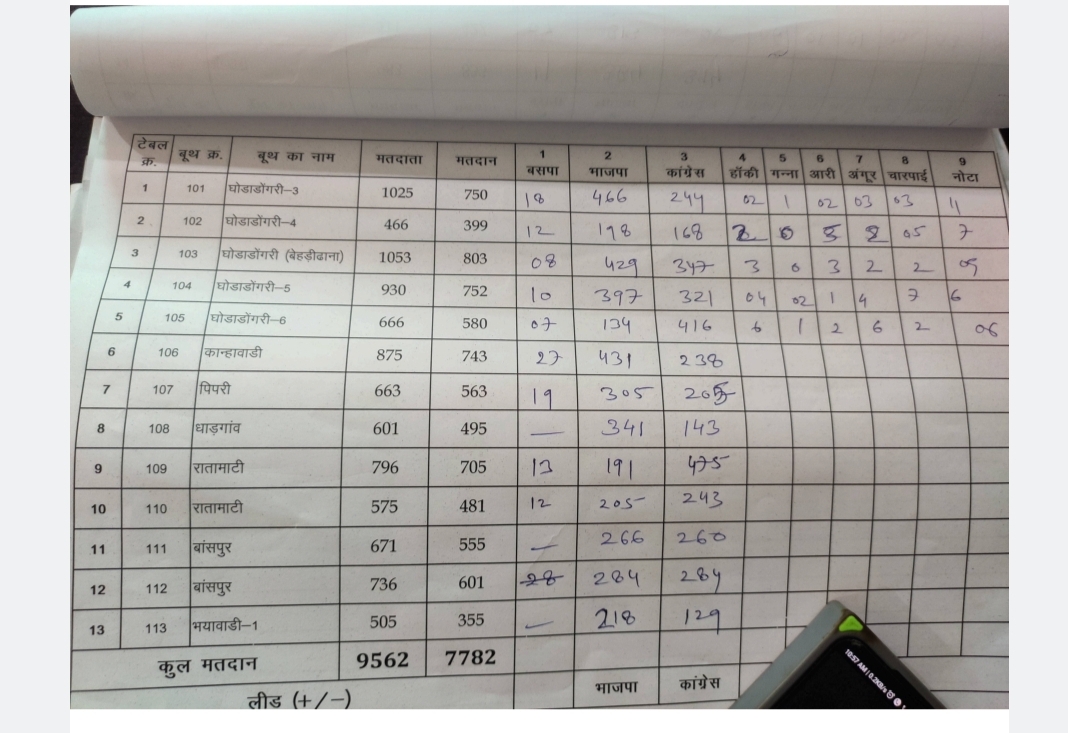 टेबल क्र. बूथ क्र. बूथ का नाम मतदाता मतदान 1 बसपा 2 भाजपा 3 कांग्रेस 4 हॉकी 5 गन्ना 6 आरी 7 अंगूर 8 चारपाई 9 नोटा
1 101 घोडाडोंगरी-3 1025 750 18 466 244 02 1 02 03 03 11
2 102 घोडाडोंगरी-4 466 399 12 198 168 2 0 5 2 05 7
3 103 घोडाडोंगरी (बेहड़ीढाना) 1053 803 08 429 347 3 0 3 2 2 09
4 104 घोडाडोंगरी-5 930 752 10 397 321 04 02 1 4 7 6
5 105 घोडाडोंगरी-6 666 580 07 134 416 6 1 2 6 2 06
6 106 कान्हावाडी 875 743 27 431 238
7 107 पिपरी 663 563 19 305 205
8 108 धाड़गांव 601 495 — 341 143
9 109 रातामाटी 796 705 13 191 475
10 110 रातामाटी 575 481 12 205 243
11 111 बांसपुर 671 555 — 266 260
12 112 बांसपुर 736 601 28 284 284
13 113 भयावाडी-1 505 355 — 218 129
कुल मतदान 9562 7782
लीड (+/-) भाजपा कांग्रेस
10:57 AM | 0.2KB/s